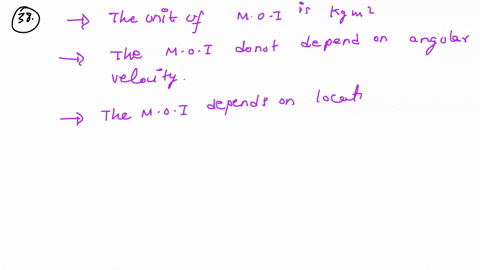 38.
→ The unit of M.O.I is kgm2
→ The M.O.I donot depend on angular
velocity.
→ The M.O.I depends on locati